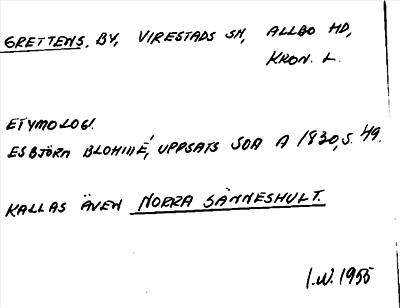 GRETTENS, BY, VIRESTADS SN, ALLBO HD,
KRON. L.
ETYMOLOGI.
ESBJÖRN BLOHMÉ, UPPSATS SOA A 1830, S. 49.
KALLAS ÄVEN NORRA SÄNNESHULT.
I.W. 1955